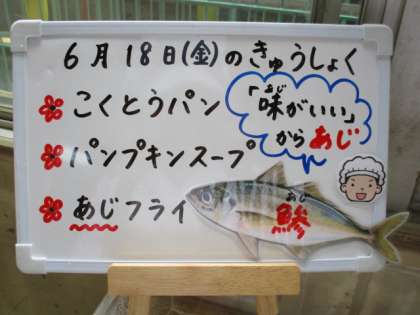 6月18日(金)のきゅうしょく
こくとうパン
パンプキンスープ
あじフライ
あじ
「味がいい」
からあじ
あじ
鯵